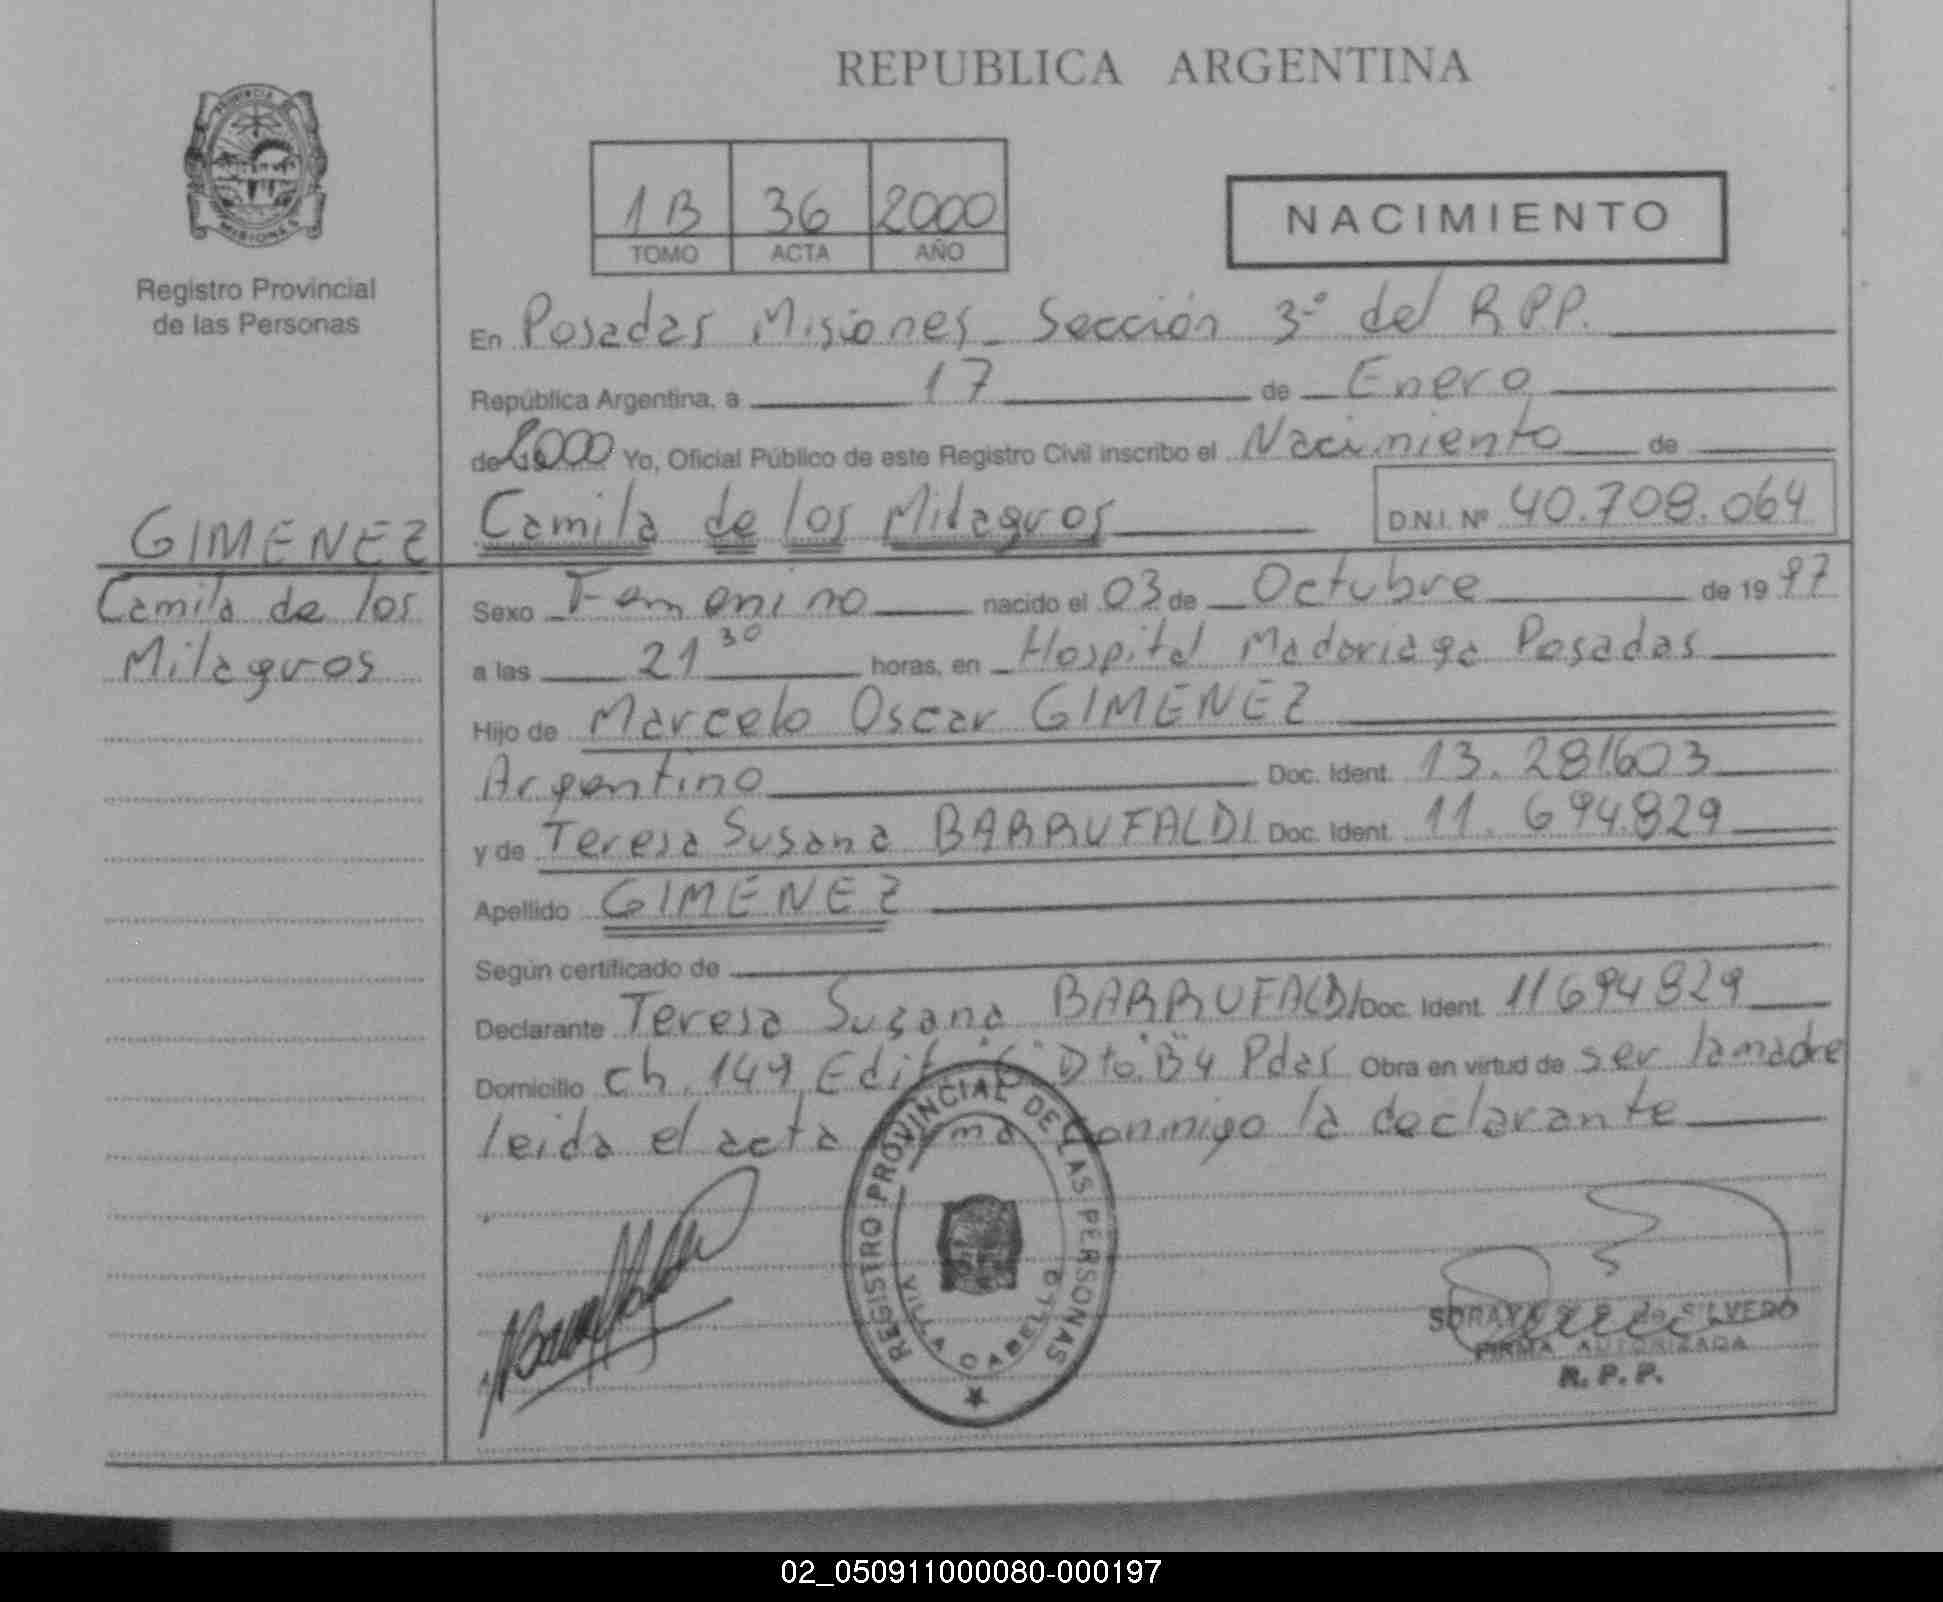 REPUBLICA ARGENTINA
PROVINCIA DE
MISIONES
Registro Provincial
de las Personas
1B 36 2000
TOMO ACTA AÑO
NACIMIENTO
En Posadas Misiones Sección 3º del R.P.P.
República Argentina, a 17 de Enero
de 2000 Yo, Oficial Público de este Registro Civil inscribo el Nacimiento de
GIMENEZ
Camila de los Milagros
D.N.I. Nº 40.708.064
Camila de los
Milagros
Sexo Femenino nacido el 03 de Octubre de 1997
a las 21 30 horas, en Hospital Madariaga Posadas
Hijo de Marcelo Oscar GIMENEZ
Argentino Doc. Ident. 13.281.603
y de Teresa Susana BARRUFALDI Doc. Ident. 11.694.829
Apellido GIMENEZ
Según certificado de
Declarante Teresa Susana BARRUFALDI Doc. Ident. 11694829
Domicilio Ch. 149 Edif "6" Dto "B" 4 Pdas Obra en virtud de ser la madre
leida el acta firma conmigo la declarante
REGISTRO PROVINCIAL DE LAS PERSONAS
VILLA CABELLO
de SILVERO
FIRMA AUTORIZADA
R. P. P.
02_050911000080-000197